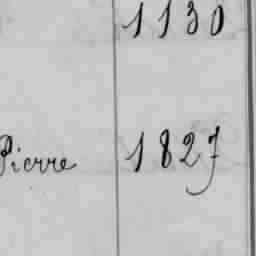 1130
Pierre 1827